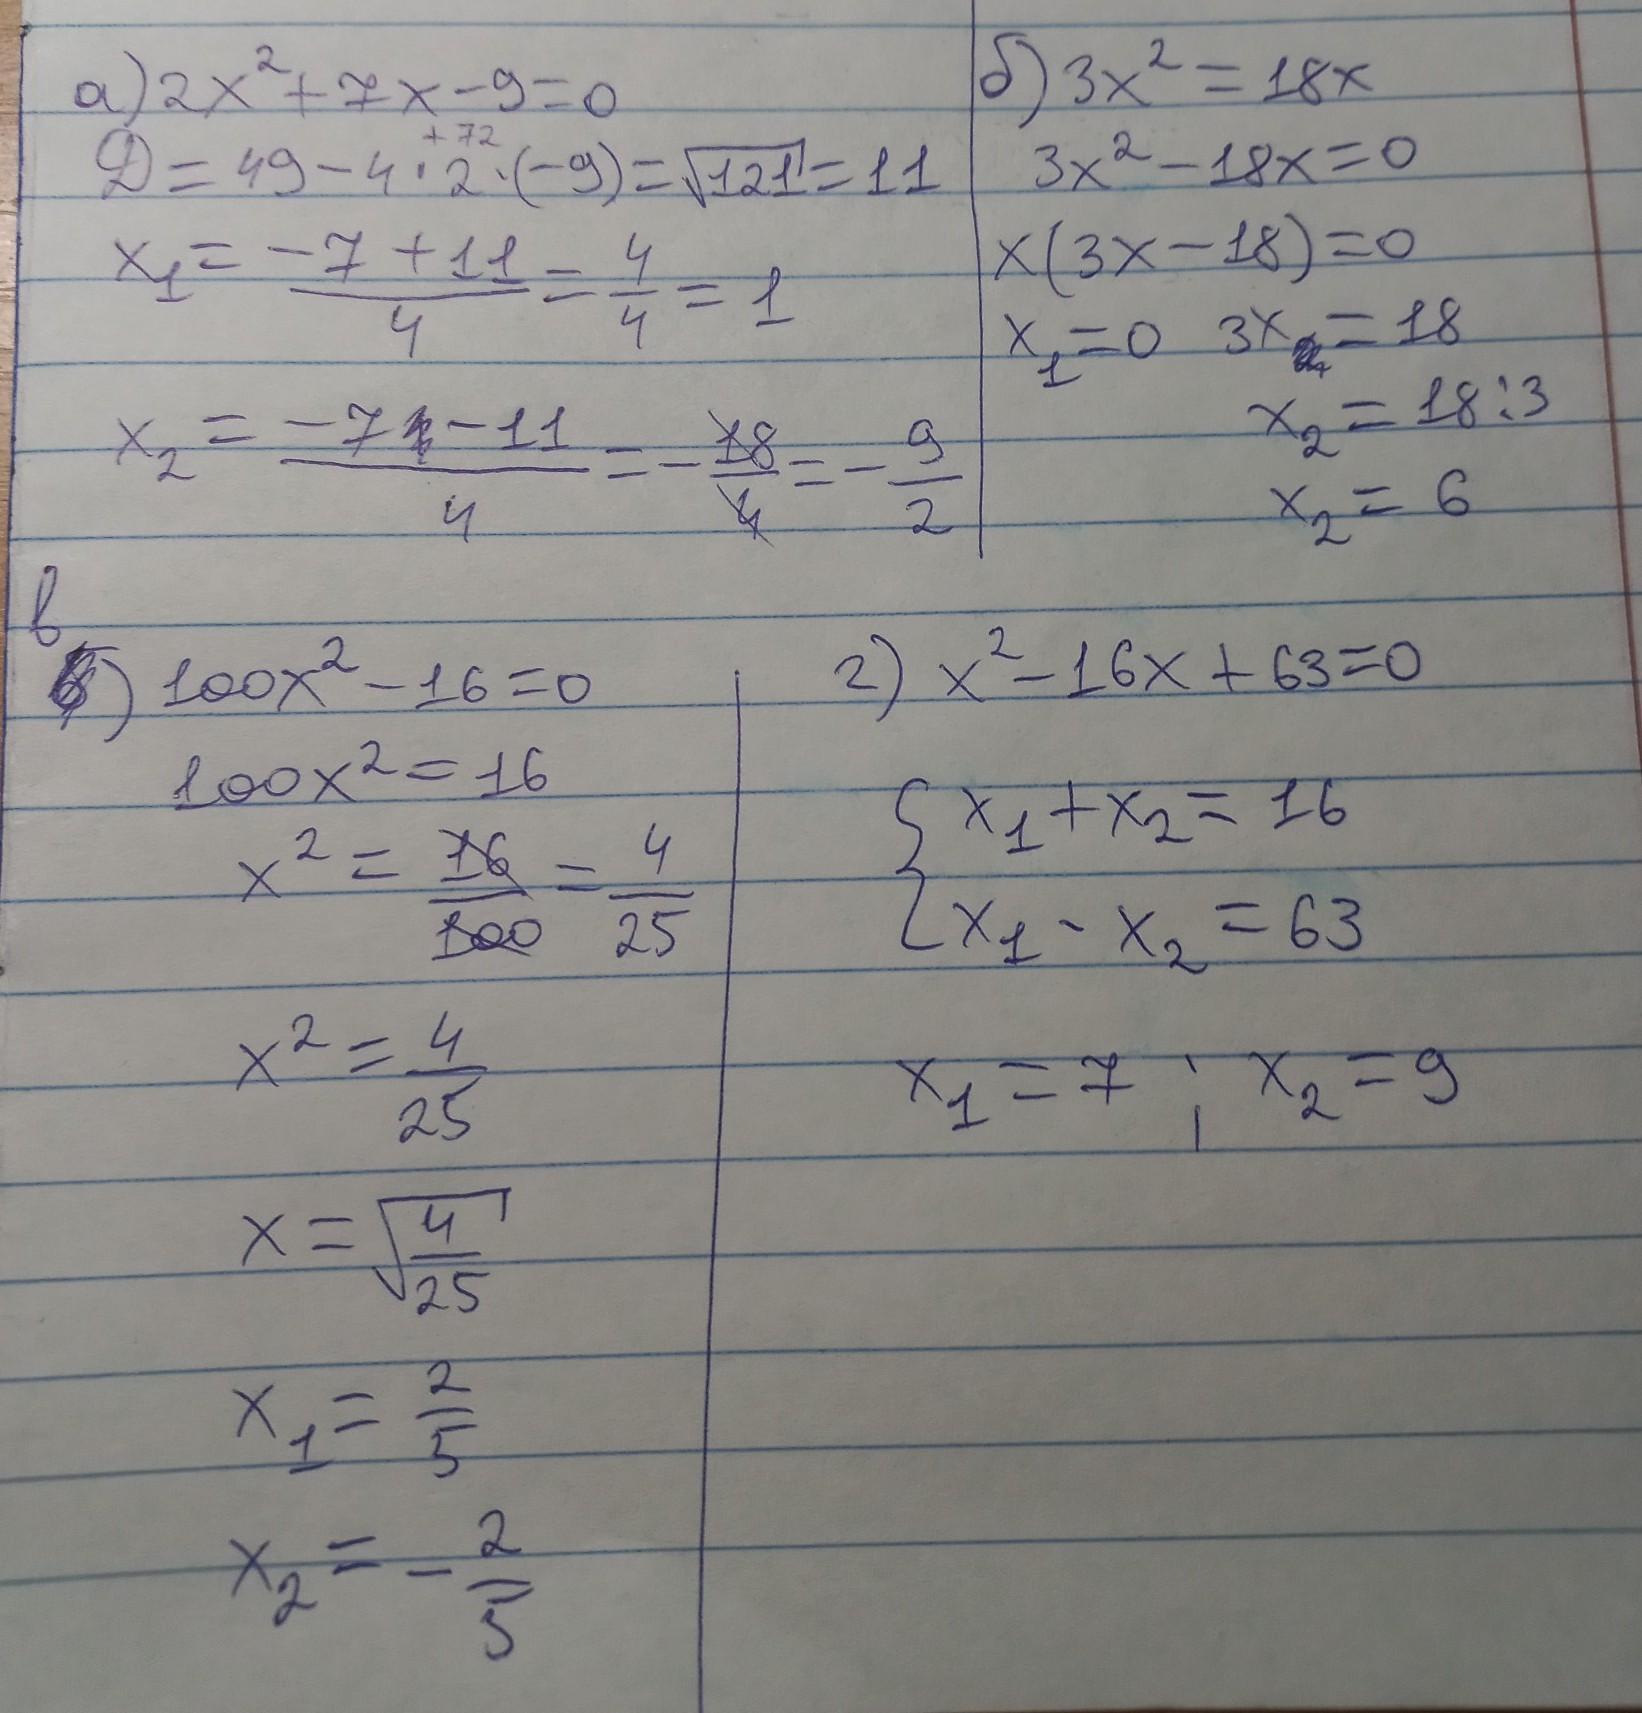 а) 2x² + 7x - 9 = 0
+ 72
D = 49 - 4 · 2 · (-9) = √121 = 11
x₁ = (-7 + 11)/4 = 4/4 = 1
x₂ = (-7 - 11)/4 = - 18/4 = - 9/2
б) 3x² = 18x
3x² - 18x = 0
x(3x - 18) = 0
x₁ = 0 3x = 18
x₂ = 18 : 3
x₂ = 6
в) 100x² - 16 = 0
100x² = 16
x² = 16/100 = 4/25
x² = 4/25
x = √(4/25)
x₁ = 2/5
x₂ = - 2/5
г) x² - 16x + 63 = 0
{ x₁ + x₂ = 16
x₁ - x₂ = 63
x₁ = 7 ; x₂ = 9